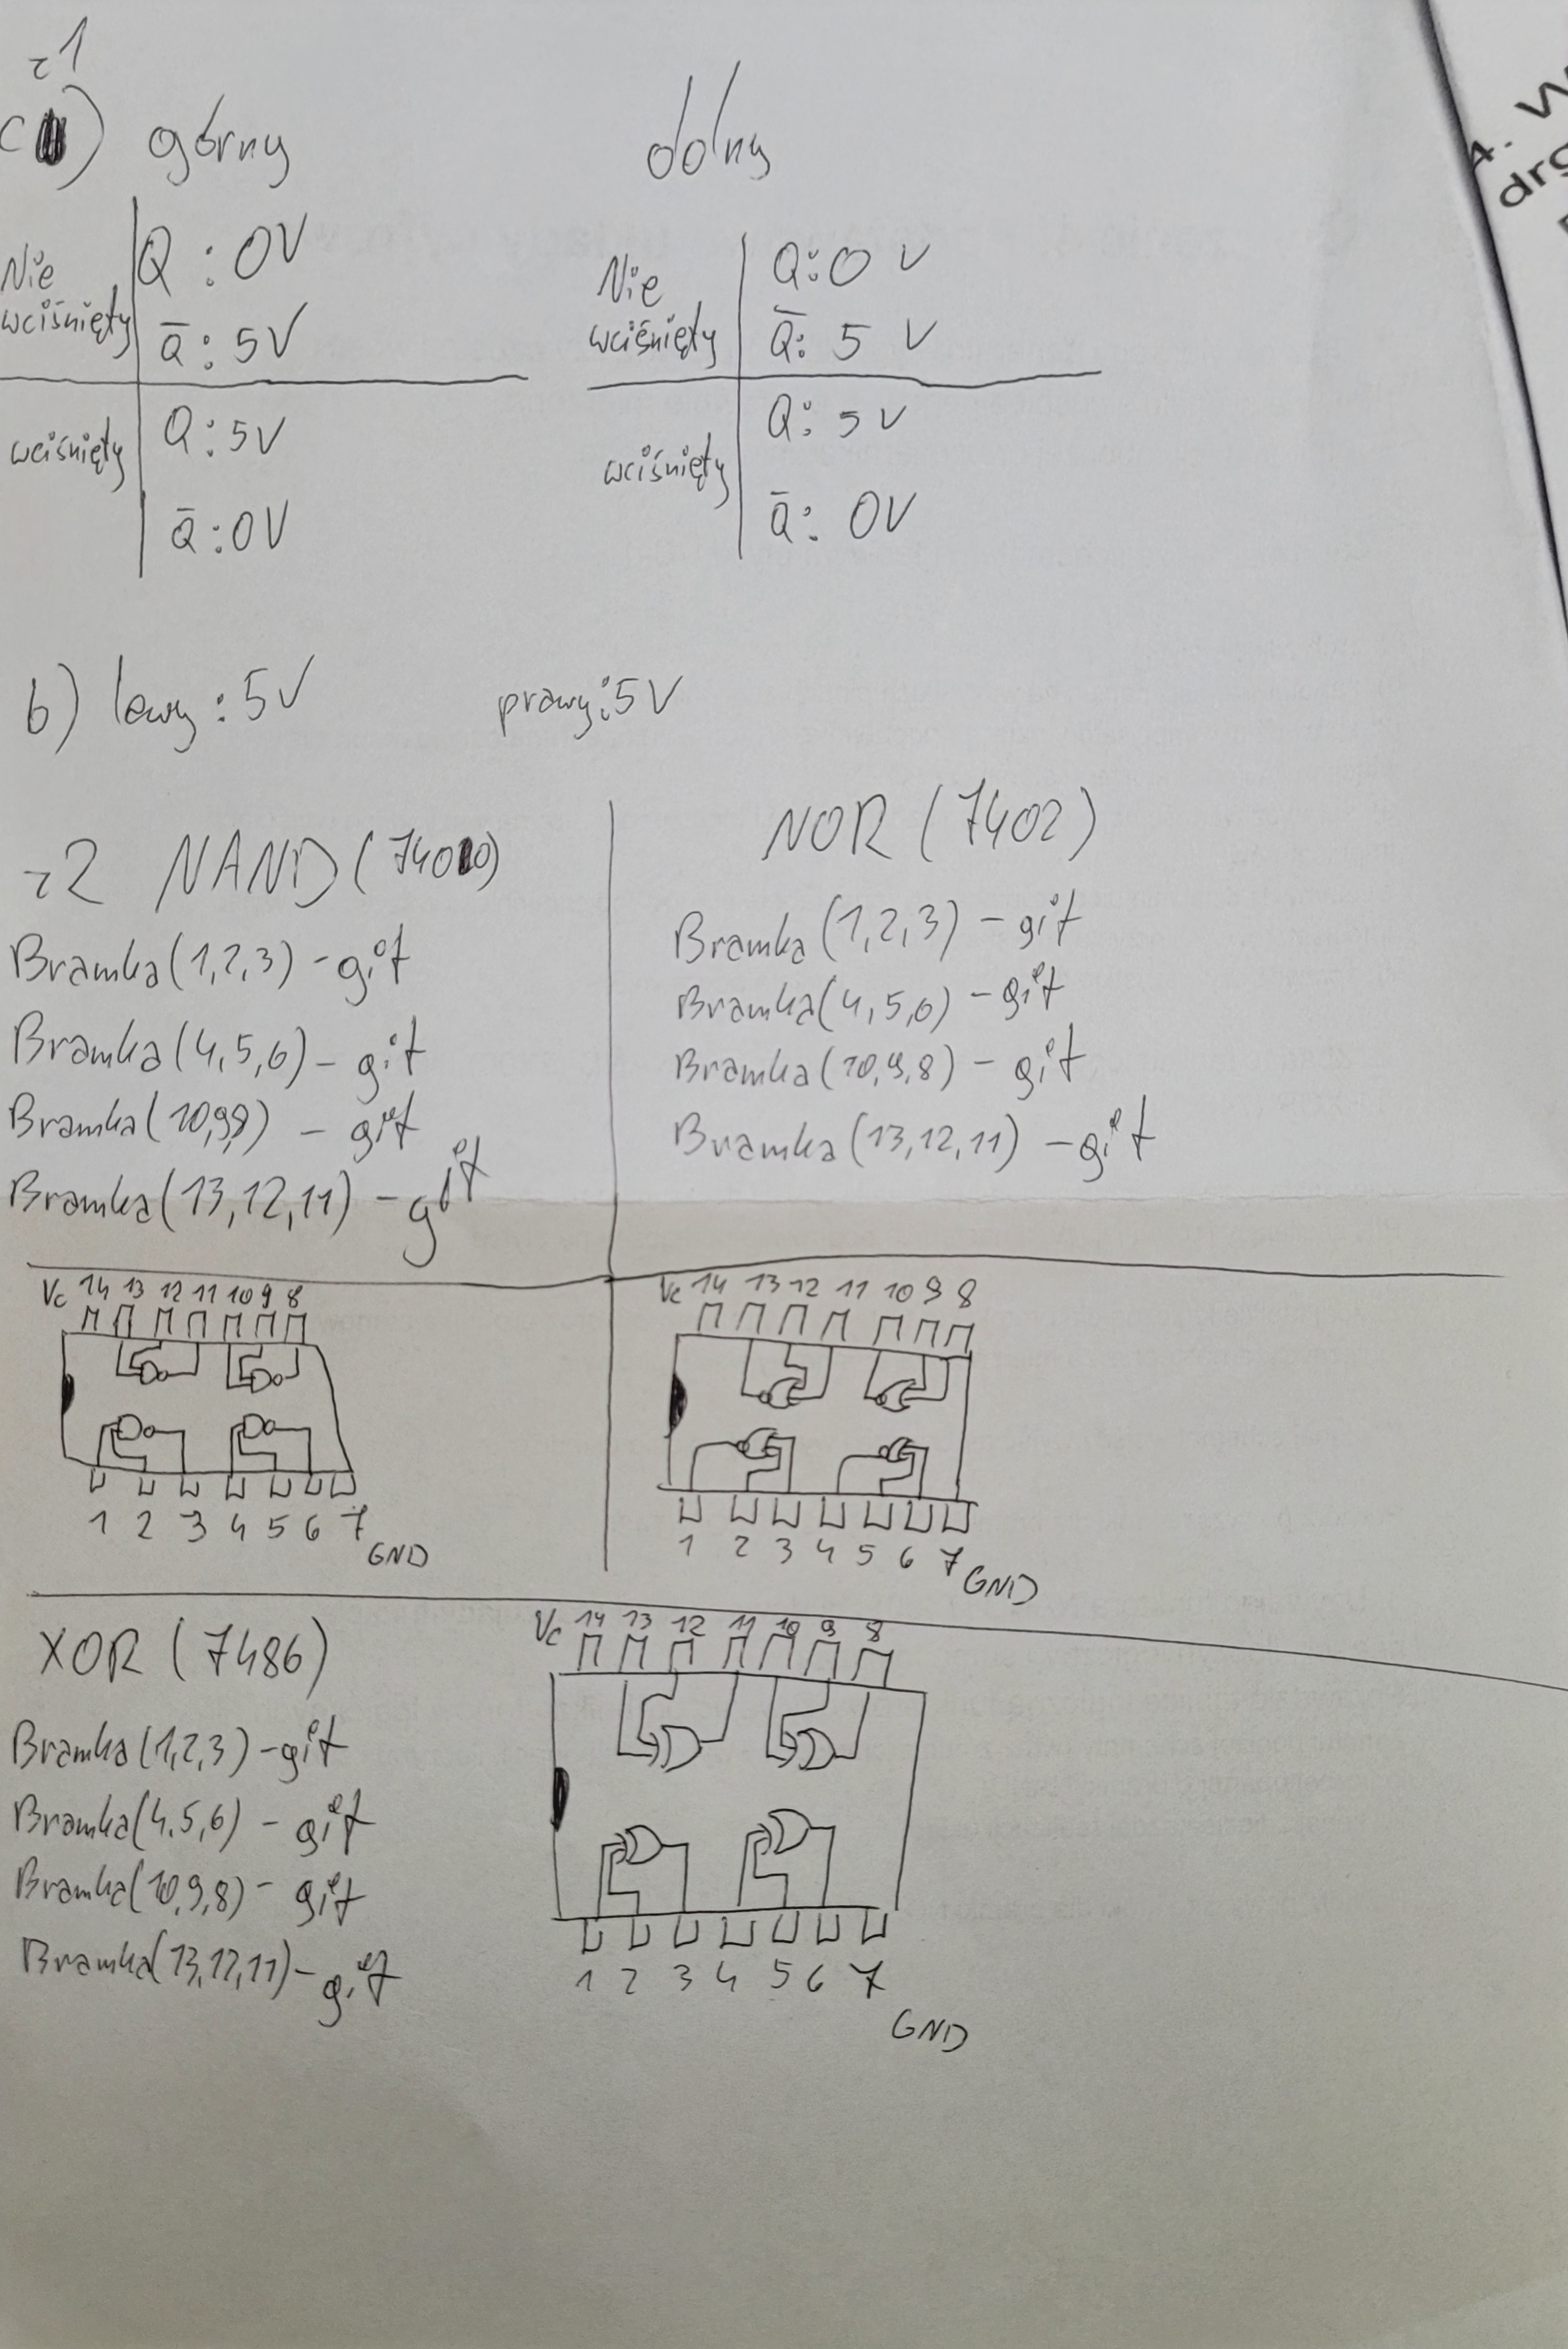 z1
górny dolny
Nie wciśnięty
Q : 0V
Q̄ : 5V
wciśnięty
Q : 5V
Q̄ : 0V
Nie wciśnięty
Q: 0 V
Q̄: 5 V
wciśnięty
Q: 5 V
Q̄: 0V
b) lewy : 5V prawy: 5V
z2 NAND (7400)
Bramka (1,2,3) - git
Bramka (4,5,6) - git
Bramka (10,9,8) - git
Bramka (13,12,11) - git
NOR (7402)
Bramka (1,2,3) - git
Bramka (4,5,6) - git
Bramka (10,9,8) - git
Bramka (13,12,11) - git
Vc 14 13 12 11 10 9 8
1 2 3 4 5 6 7
GND
Vc 14 13 12 11 10 9 8
1 2 3 4 5 6 7
GND
XOR (7486)
Bramka (1,2,3) - git
Bramka (4.5,6) - git
Bramka (10,9,8) - git
Bramka (13,12,11) - git
Vc 14 13 12 11 10 9 8
1 2 3 4 5 6 7
GND
4. W
drg